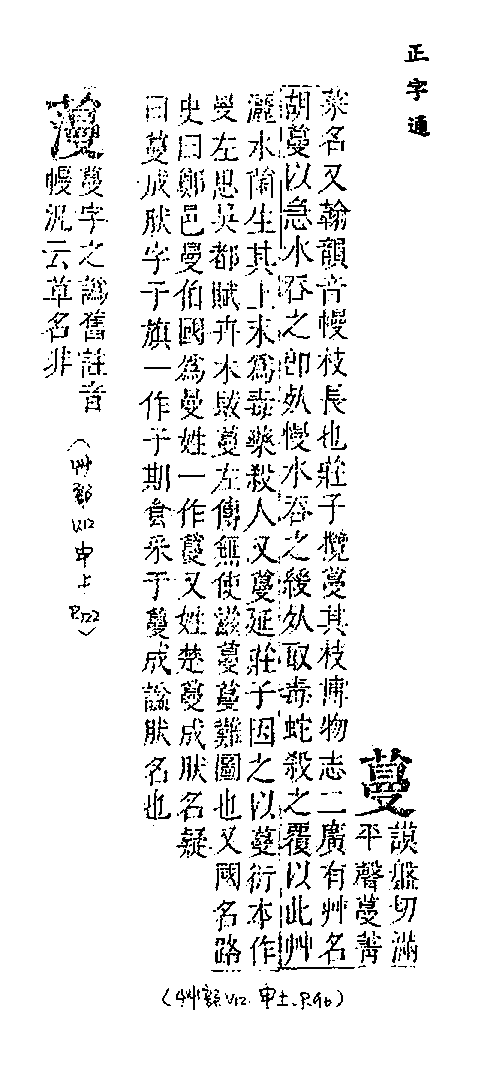 正字通
蔓
謨盤切滿
平聲蔓菁
菜名又翰韻音幔枝長也莊子攬蔓其枝博物志二廣有艸名
胡蔓以急水吞之卽𣦸慢水吞之緩𣦸取毒蛇殺之覆以此艸
灑水菌生其上末爲毒藥殺人又蔓延莊子因之以蔓衍本作
曼左思吳都賦卉木镺蔓左傳無使滋蔓蔓難圖也又國名路
史曰鄭邑曼伯國爲曼姓一作蔓又姓楚蔓成肰名疑
曰蔓成肰字子旗一作子期食采于蔓成諡肰名也
(艸部V12. 申上. P.96)
蔓字之譌舊註音
幔汎云草名非
(艸部 V.12 申上 P.122)